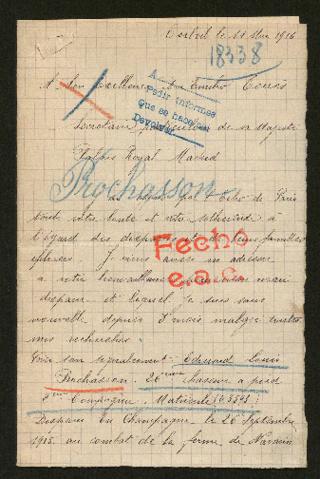 Corbeil le 11 Mars 1916
18338
A Son Excellence Don Emilio Torres
A
Pedir informes
Que se haga
Devolver
Secrétaire particulier de sa Majesté
Palais Royal Madrid
Prochasson
par l'Echo de Paris
toute votre bonté et votre
l'égard des disparus et leurs familles
Je viens aussi m'adresser
à votre bienveillance mon mari
disparu et duquel je suis sans
nouvelle depuis 5 mois malgré toutes
mes recherches.
Fecho
e.a.c.
Voici son signalement: Edouard Louis
Prochasson. 26ème chasseur à pied
Compagnie. Matricule
Disparu en Champagne le 26 Septembre
1915 au combat de la ferme de Navarin